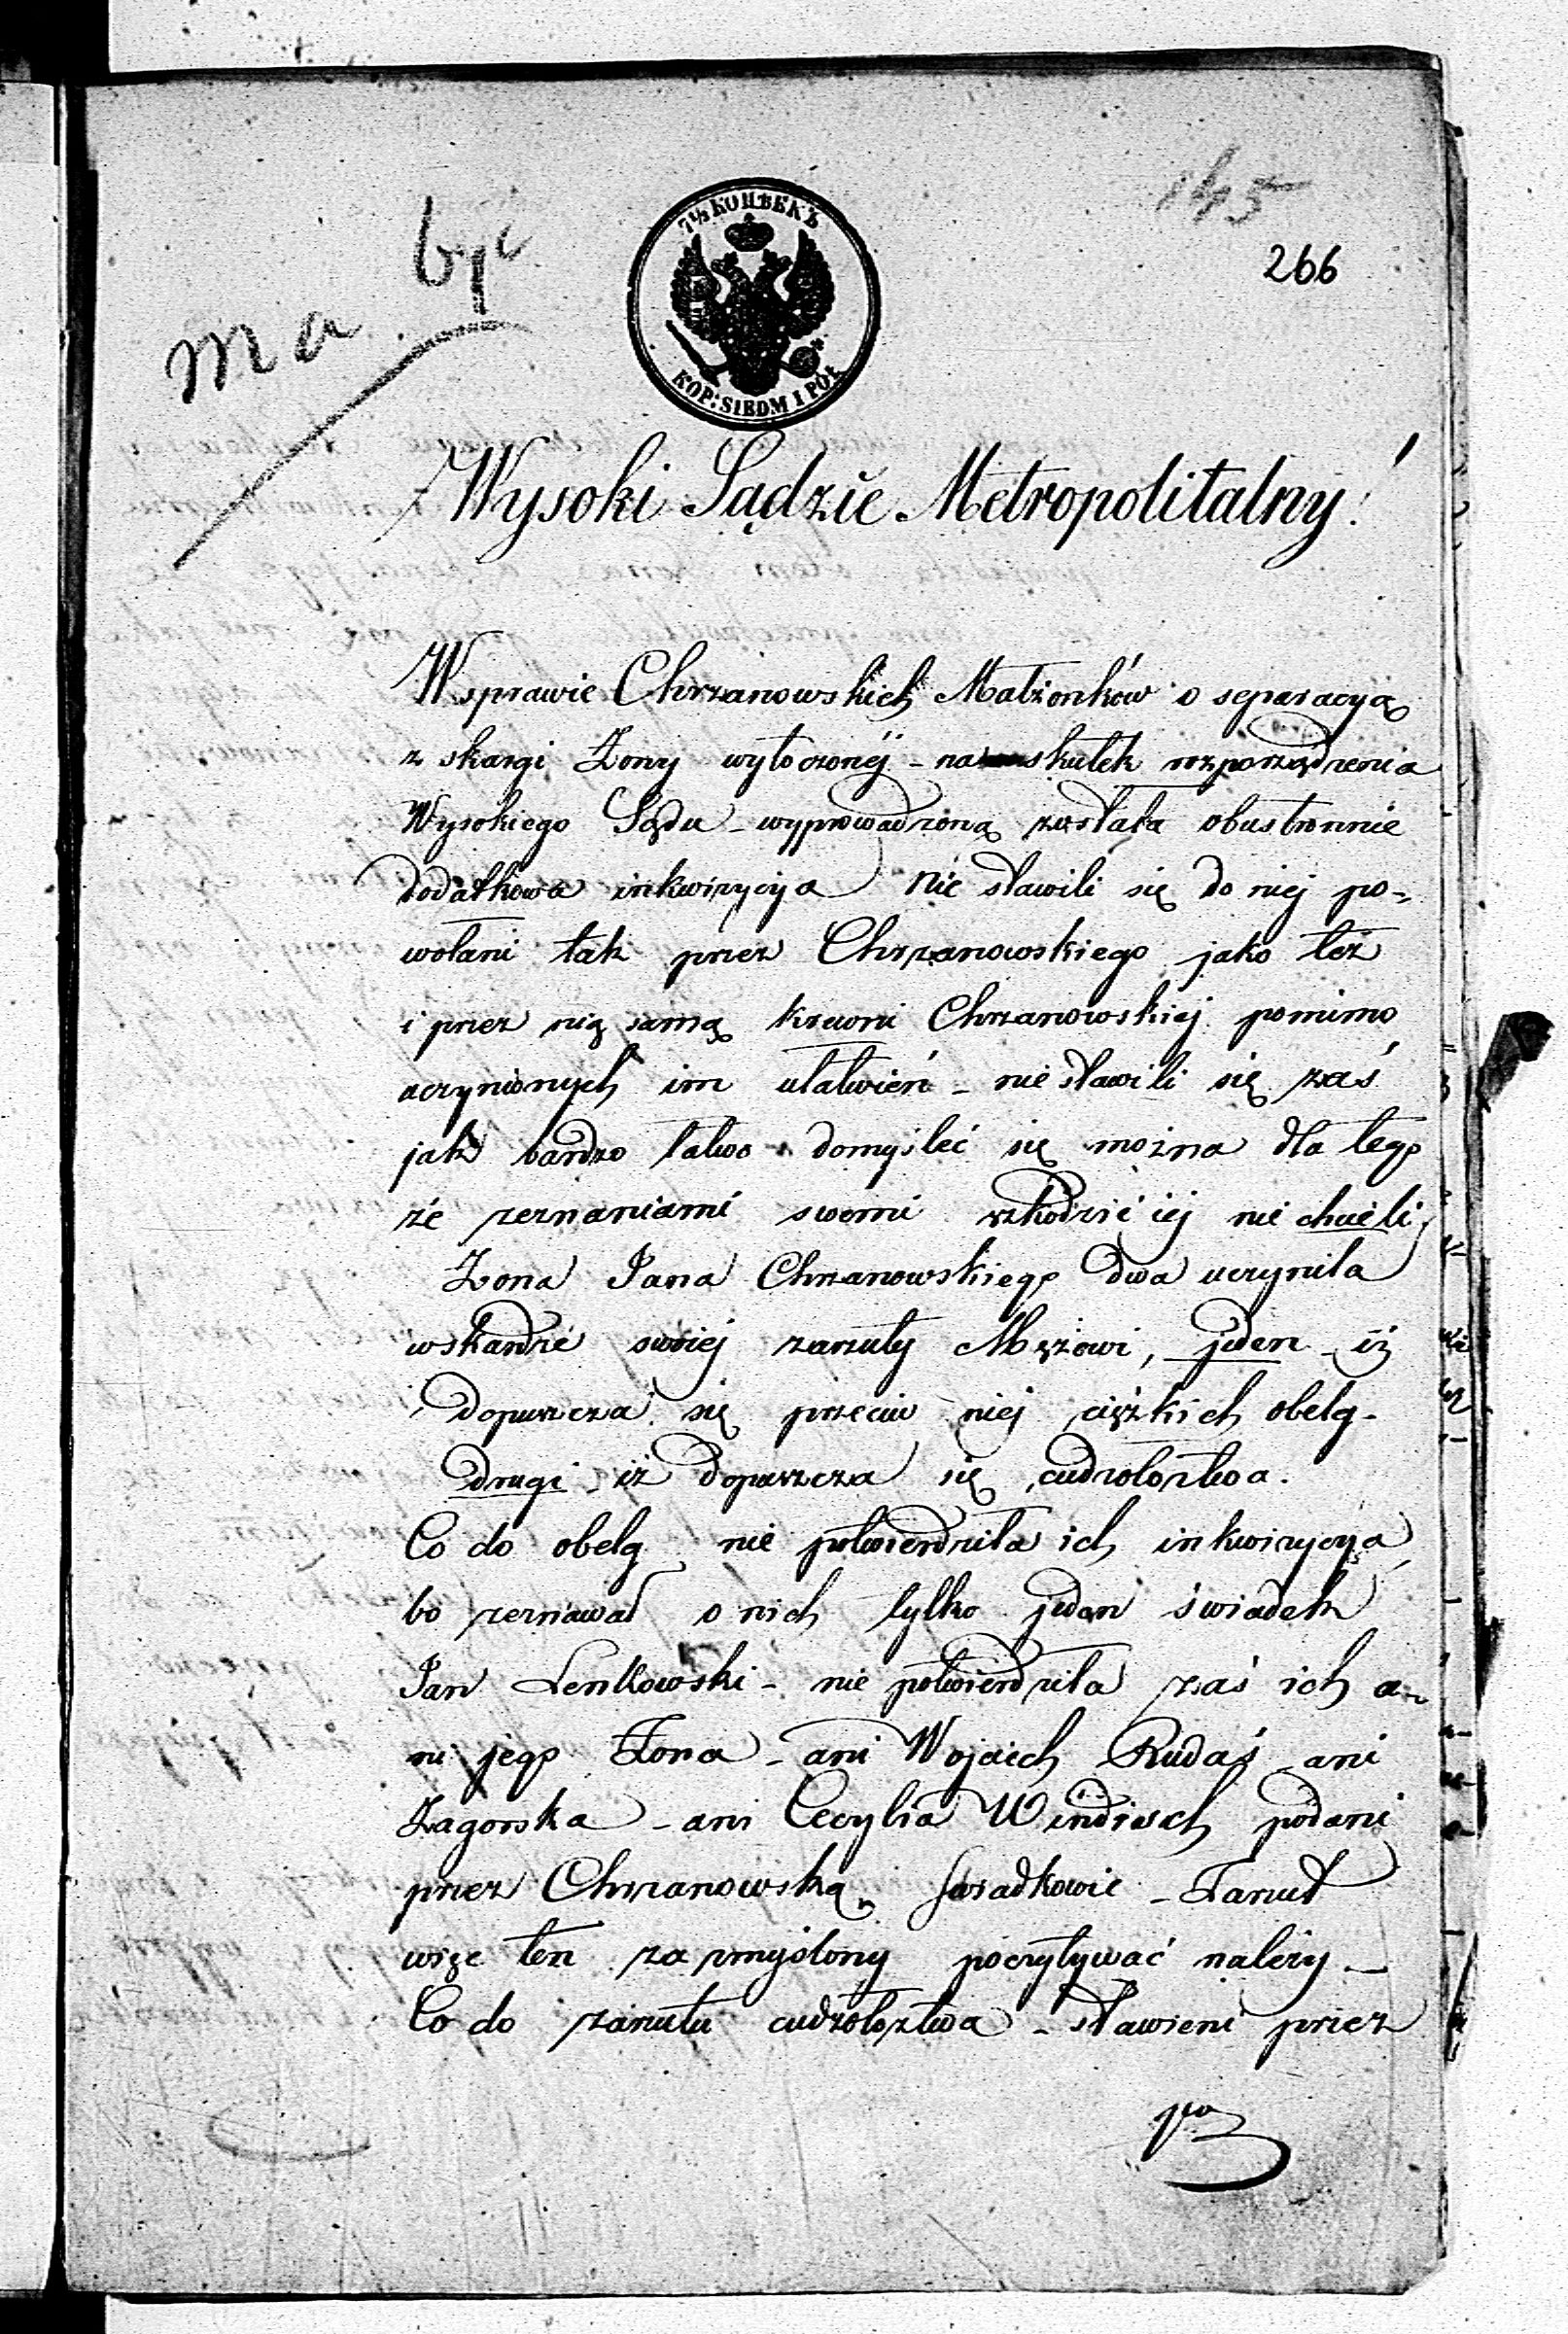 145
266
ma być
7½ КОПѢЕКЪ
KOP: SIEDM I PÓŁ
Wysoki Sądzie Metropolitalny!
W sprawie Chrzanowskich Małżonków o separacyą
z skargi Żony wytoczonej - na skutek rozporządzenia
Wysokiego Sądu - wyprowadzoną została obustronnie
dodatkowa inkwizycyja nie stawili się do niej po-
wołani tak przez Chrzanowskiego jako też
i przez nią samą krewni Chrzanowskiej pomimo
uczynionych im ułatwień - nie stawili się zaś
jak bardzo łatwo domyśleć się można dla tego
że zeznaniami swemi szkodzić jej nie chcieli,
Żona Jana Chrzanowskiego dwa uczyniła
w skardze swojej zarzuty Mężowi, jeden - iż
dopuszcza się przeciw niej ciężkich obelg -
drugi - iż dopuszcza się cudzołoztwa.
Co do obelg nie potwierdziła ich inkwizycya,
bo zeznawał o nich tylko jeden świadek
Jan Lenkowski - nie potwierdziła zaś ich a-
ni jego Żona - ani Wojciech Rudaś - ani
Zagorska - ani Cecylia Windisch podani
przez Chrzanowską świadkowie - Zarzut
więc ten za zmyślony poczytywać należy -
Co do zarzutu cudzołoztwa - stawieni przez